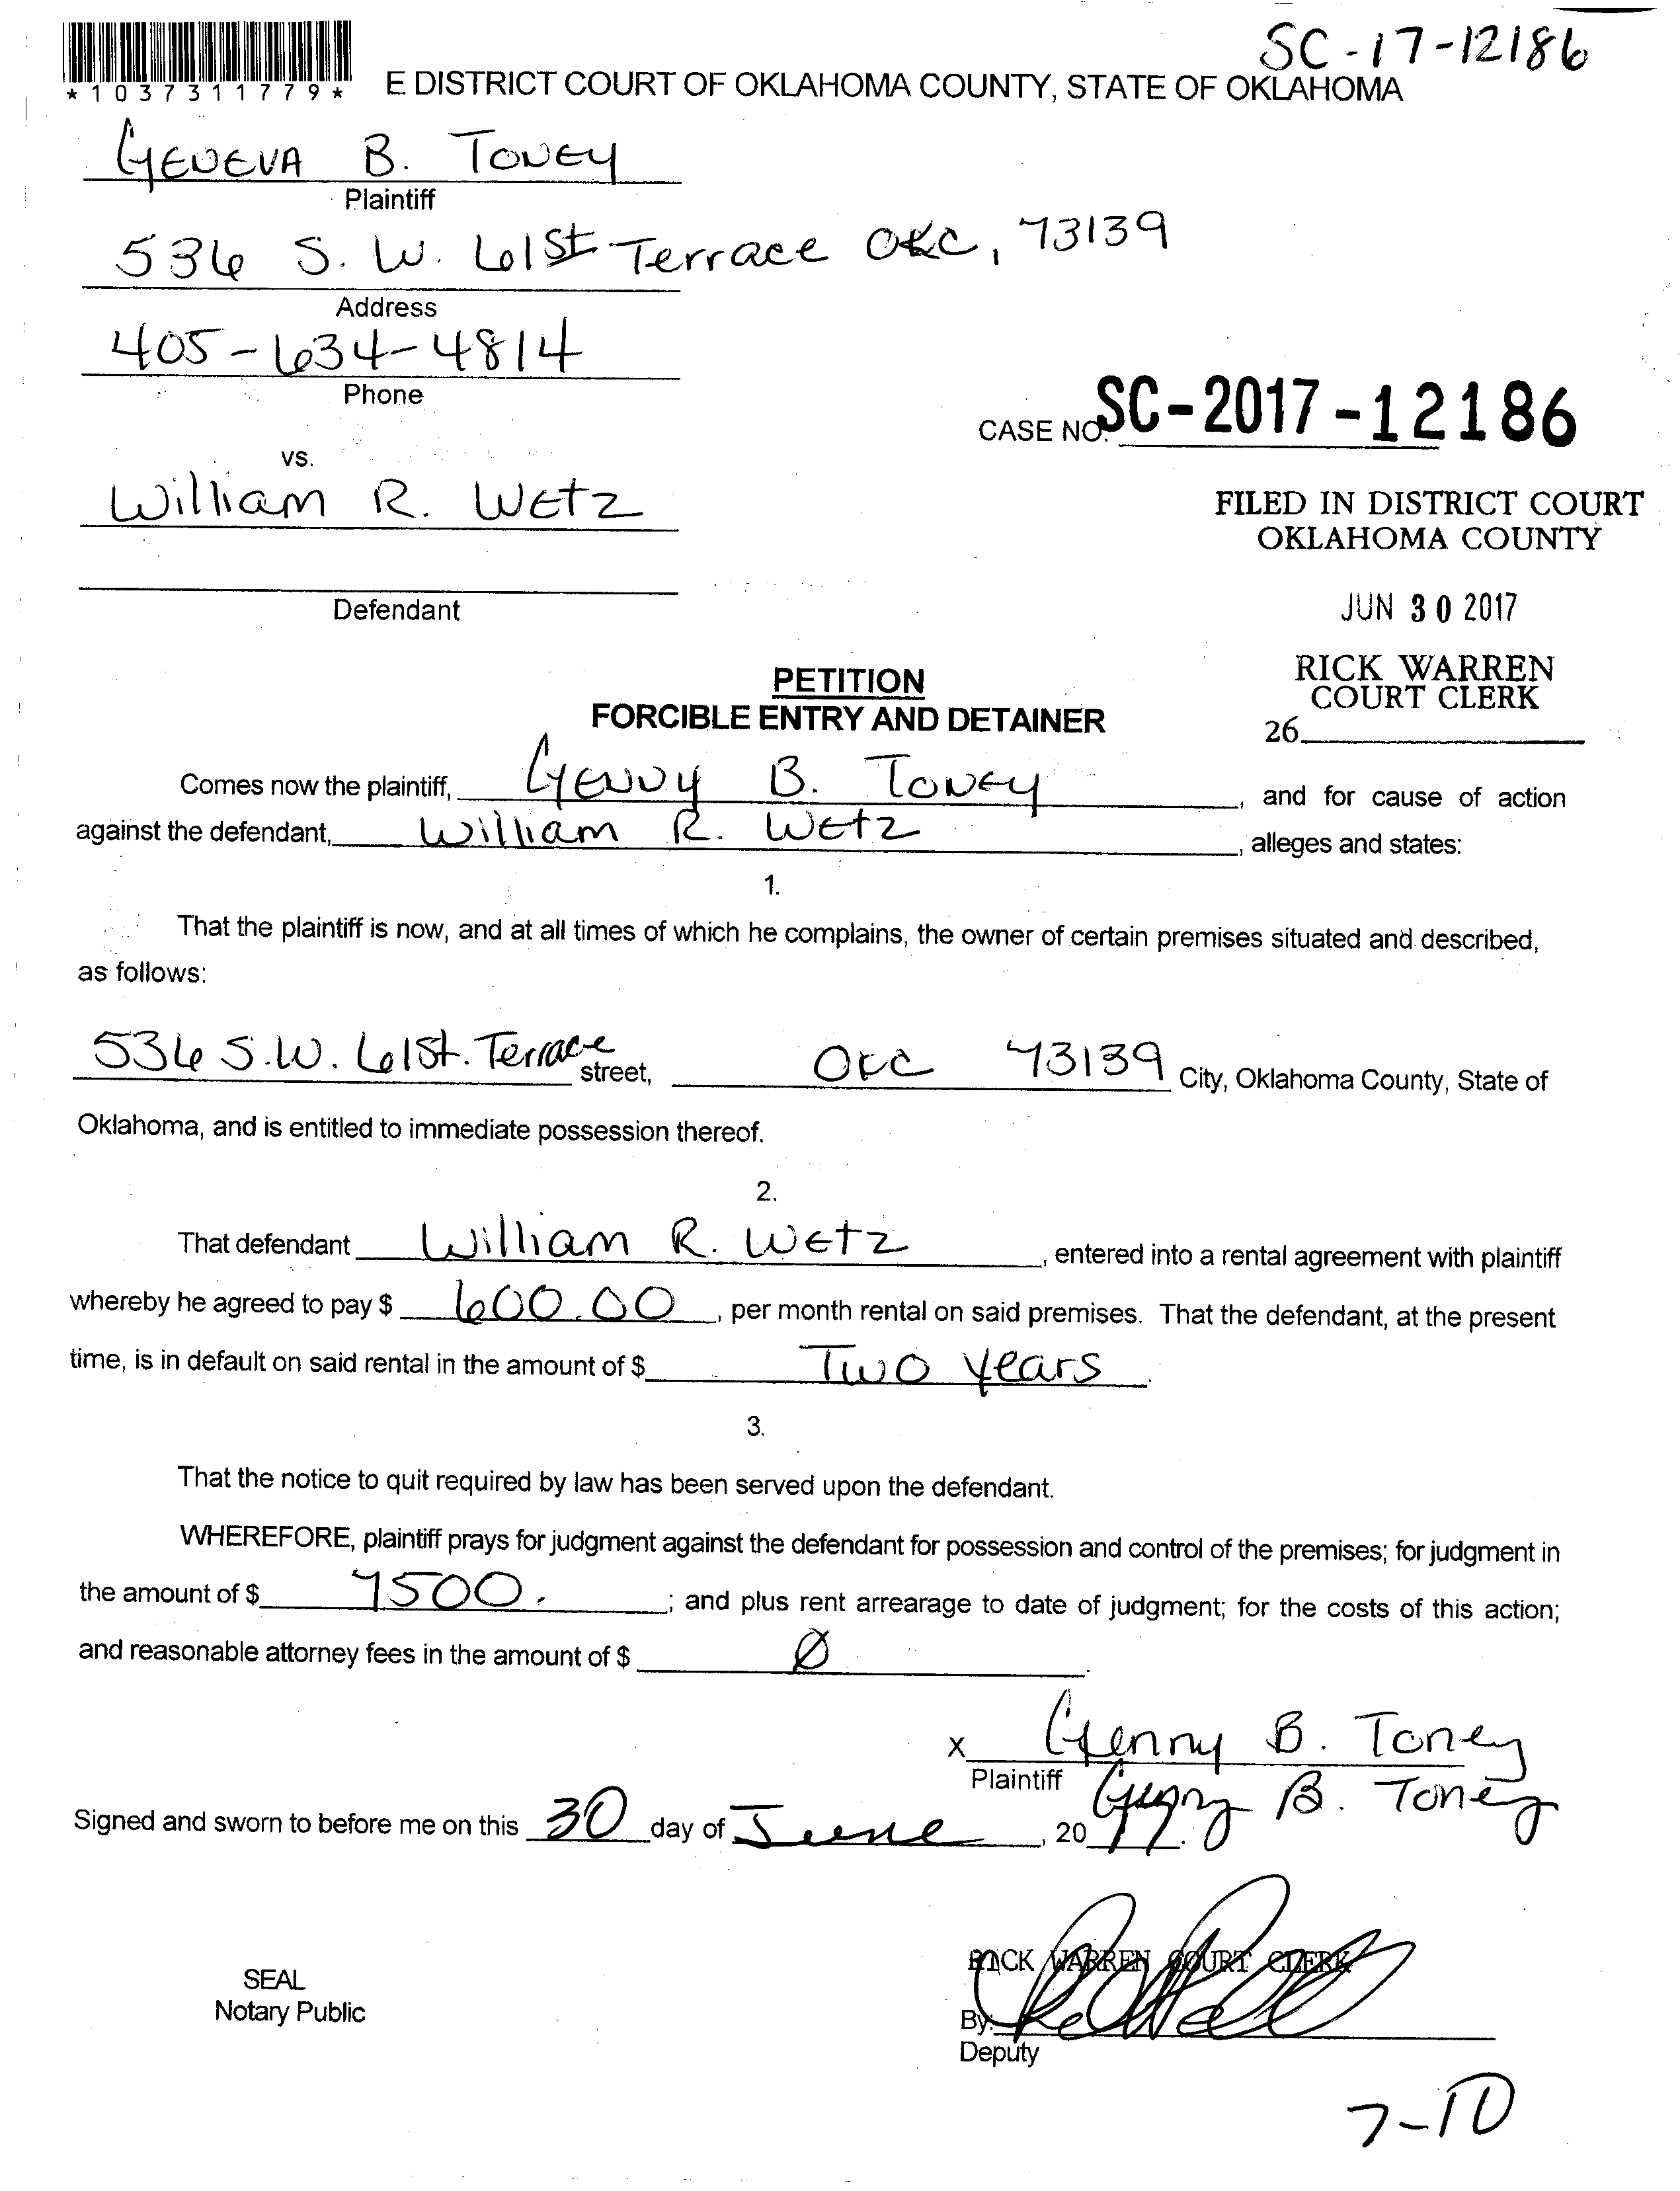 SC-17-12186
*1037311779*
E DISTRICT COURT OF OKLAHOMA COUNTY, STATE OF OKLAHOMA
GENEVA B. TONEY
Plaintiff
536 S. W. 61st Terrace OKC, 73139
Address
405-634-4814
Phone
CASE NO. SC-2017-12186
vs.
William R. Wetz
FILED IN DISTRICT COURT
OKLAHOMA COUNTY
Defendant
JUN 30 2017
RICK WARREN
COURT CLERK
26
PETITION
FORCIBLE ENTRY AND DETAINER
Comes now the plaintiff, GENNY B. TONEY, and for cause of action
against the defendant, William R. Wetz, alleges and states:
1.
That the plaintiff is now, and at all times of which he complains, the owner of certain premises situated and described,
as follows:
536 S.W. 61st. Terrace street, OKC 73139 City, Oklahoma County, State of
Oklahoma, and is entitled to immediate possession thereof.
2.
That defendant William R. Wetz, entered into a rental agreement with plaintiff
whereby he agreed to pay $ 600.00, per month rental on said premises. That the defendant, at the present
time, is in default on said rental in the amount of $ Two years.
3.
That the notice to quit required by law has been served upon the defendant.
WHEREFORE, plaintiff prays for judgment against the defendant for possession and control of the premises; for judgment in
the amount of $ 7500. ; and plus rent arrearage to date of judgment; for the costs of this action;
and reasonable attorney fees in the amount of $ Ø.
X Genny B. Toney
Plaintiff Genny B. Toney
Signed and sworn to before me on this 30 day of June, 2017.
RICK WARREN COURT CLERK
SEAL
Notary Public
By:
Deputy
7-10